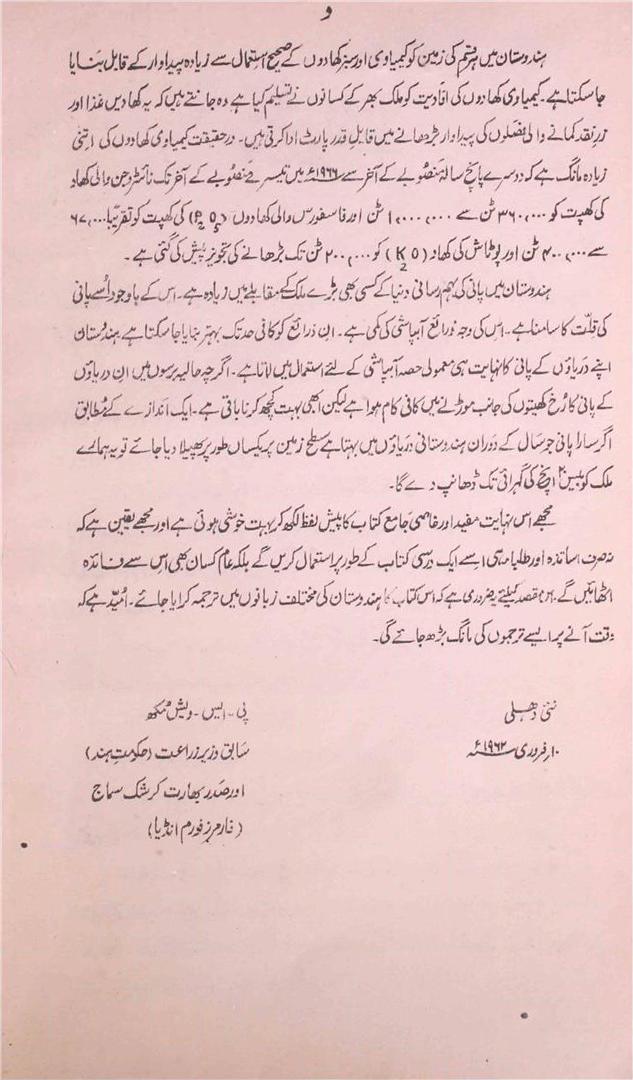 و
ہندوستان میں ہر قسم کی زمین کو کیمیاوی اور سبز کھادوں کے صحیح استعمال سے زیادہ پیداوار کے قابل بنایا
جا سکتا ہے۔ کیمیاوی کھادوں کی افادیت کو ملک بھر کے کسانوں نے تسلیم کیا ہے وہ جانتے ہیں کہ یہ کھادیں غذا اور
زرِ نقد کمانے والی فصلوں کی پیداوار بڑھانے میں قابل قدر پارٹ ادا کرتی ہیں۔ درحقیقت کیمیاوی کھادوں کی اتنی
زیادہ مانگ ہے کہ دوسرے پانچ سالہ منصوبے کے آخر سے ۱۹۶۶ء میں تیسرے منصوبے کے آخر تک نائٹروجن والی کھاد
کی کھپت کو ۳۶۰,۰۰۰ ٹن سے ۱,۰۰۰,۰۰۰ ٹن اور فاسفورس والی کھادوں (P2O5) کی کھپت کو تقریباً ۶۷,۰۰۰
سے ۴۰۰,۰۰۰ ٹن اور پوٹاش کی کھاد (K2O) کو ۲۰۰,۰۰۰ ٹن تک بڑھانے کی تجویز پیش کی گئی ہے۔
ہندوستان میں پانی کی بہم رسانی دنیا کے کسی بھی بڑے ملک کے مقابلے میں زیادہ ہے۔ اس کے باوجود اُسے پانی
کی قلّت کا سامنا ہے۔ اس کی وجہ ذرائع آبپاشی کی کمی ہے۔ ان ذرائع کو کافی حد تک بہتر بنایا جا سکتا ہے ہندوستان
اپنے دریاؤں کے پانی کا نہایت ہی معمولی حصہ آبپاشی کے لئے استعمال میں لاتا ہے۔ اگرچہ حالیہ برسوں میں ان دریاؤں
کے پانی کا رُخ کھیتوں کی جانب موڑنے میں کافی کام ہوا ہے لیکن ابھی بہت کچھ کرنا باقی ہے۔ ایک اندازے کے مطابق
اگر سارا پانی جو سال کے دَوران ہندوستانی دریاؤں میں بہتا ہے سطح زمین پر یکساں طور پر پھیلا دیا جائے تو یہ ہمارے
ملک کو بیس ۲۰ اِنچ کی گہرائی تک ڈھانپ دے گا۔
مجھے اس نہایت مفید اور خاصی جامع کتاب کا پیش لفظ لکھ کر بہت خوشی ہوئی ہے اور مجھے یقین ہے کہ
نہ صرف اساتذہ اور طلباء ہی اسے ایک درسی کتاب کے طور پر استعمال کریں گے بلکہ عام کسان بھی اس سے فائدہ
اٹھائیں گے۔ اس مقصد کیلئے یہ ضروری ہے کہ اس کتاب کا ہندوستان کی مختلف زبانوں میں ترجمہ کرایا جائے۔ اُمیّد ہے کہ
وقت آنے پر ایسے ترجموں کی مانگ بڑھ جائے گی۔
نئی دہلی
۱۰ر فروری ۱۹۶۲ء
پی۔ ایس۔ دیش مُکھ
سابق وزیر زراعت (حکومتِ ہند)
اور صدر بھارت کرشک سماج
(فارمرز فورم انڈیا)